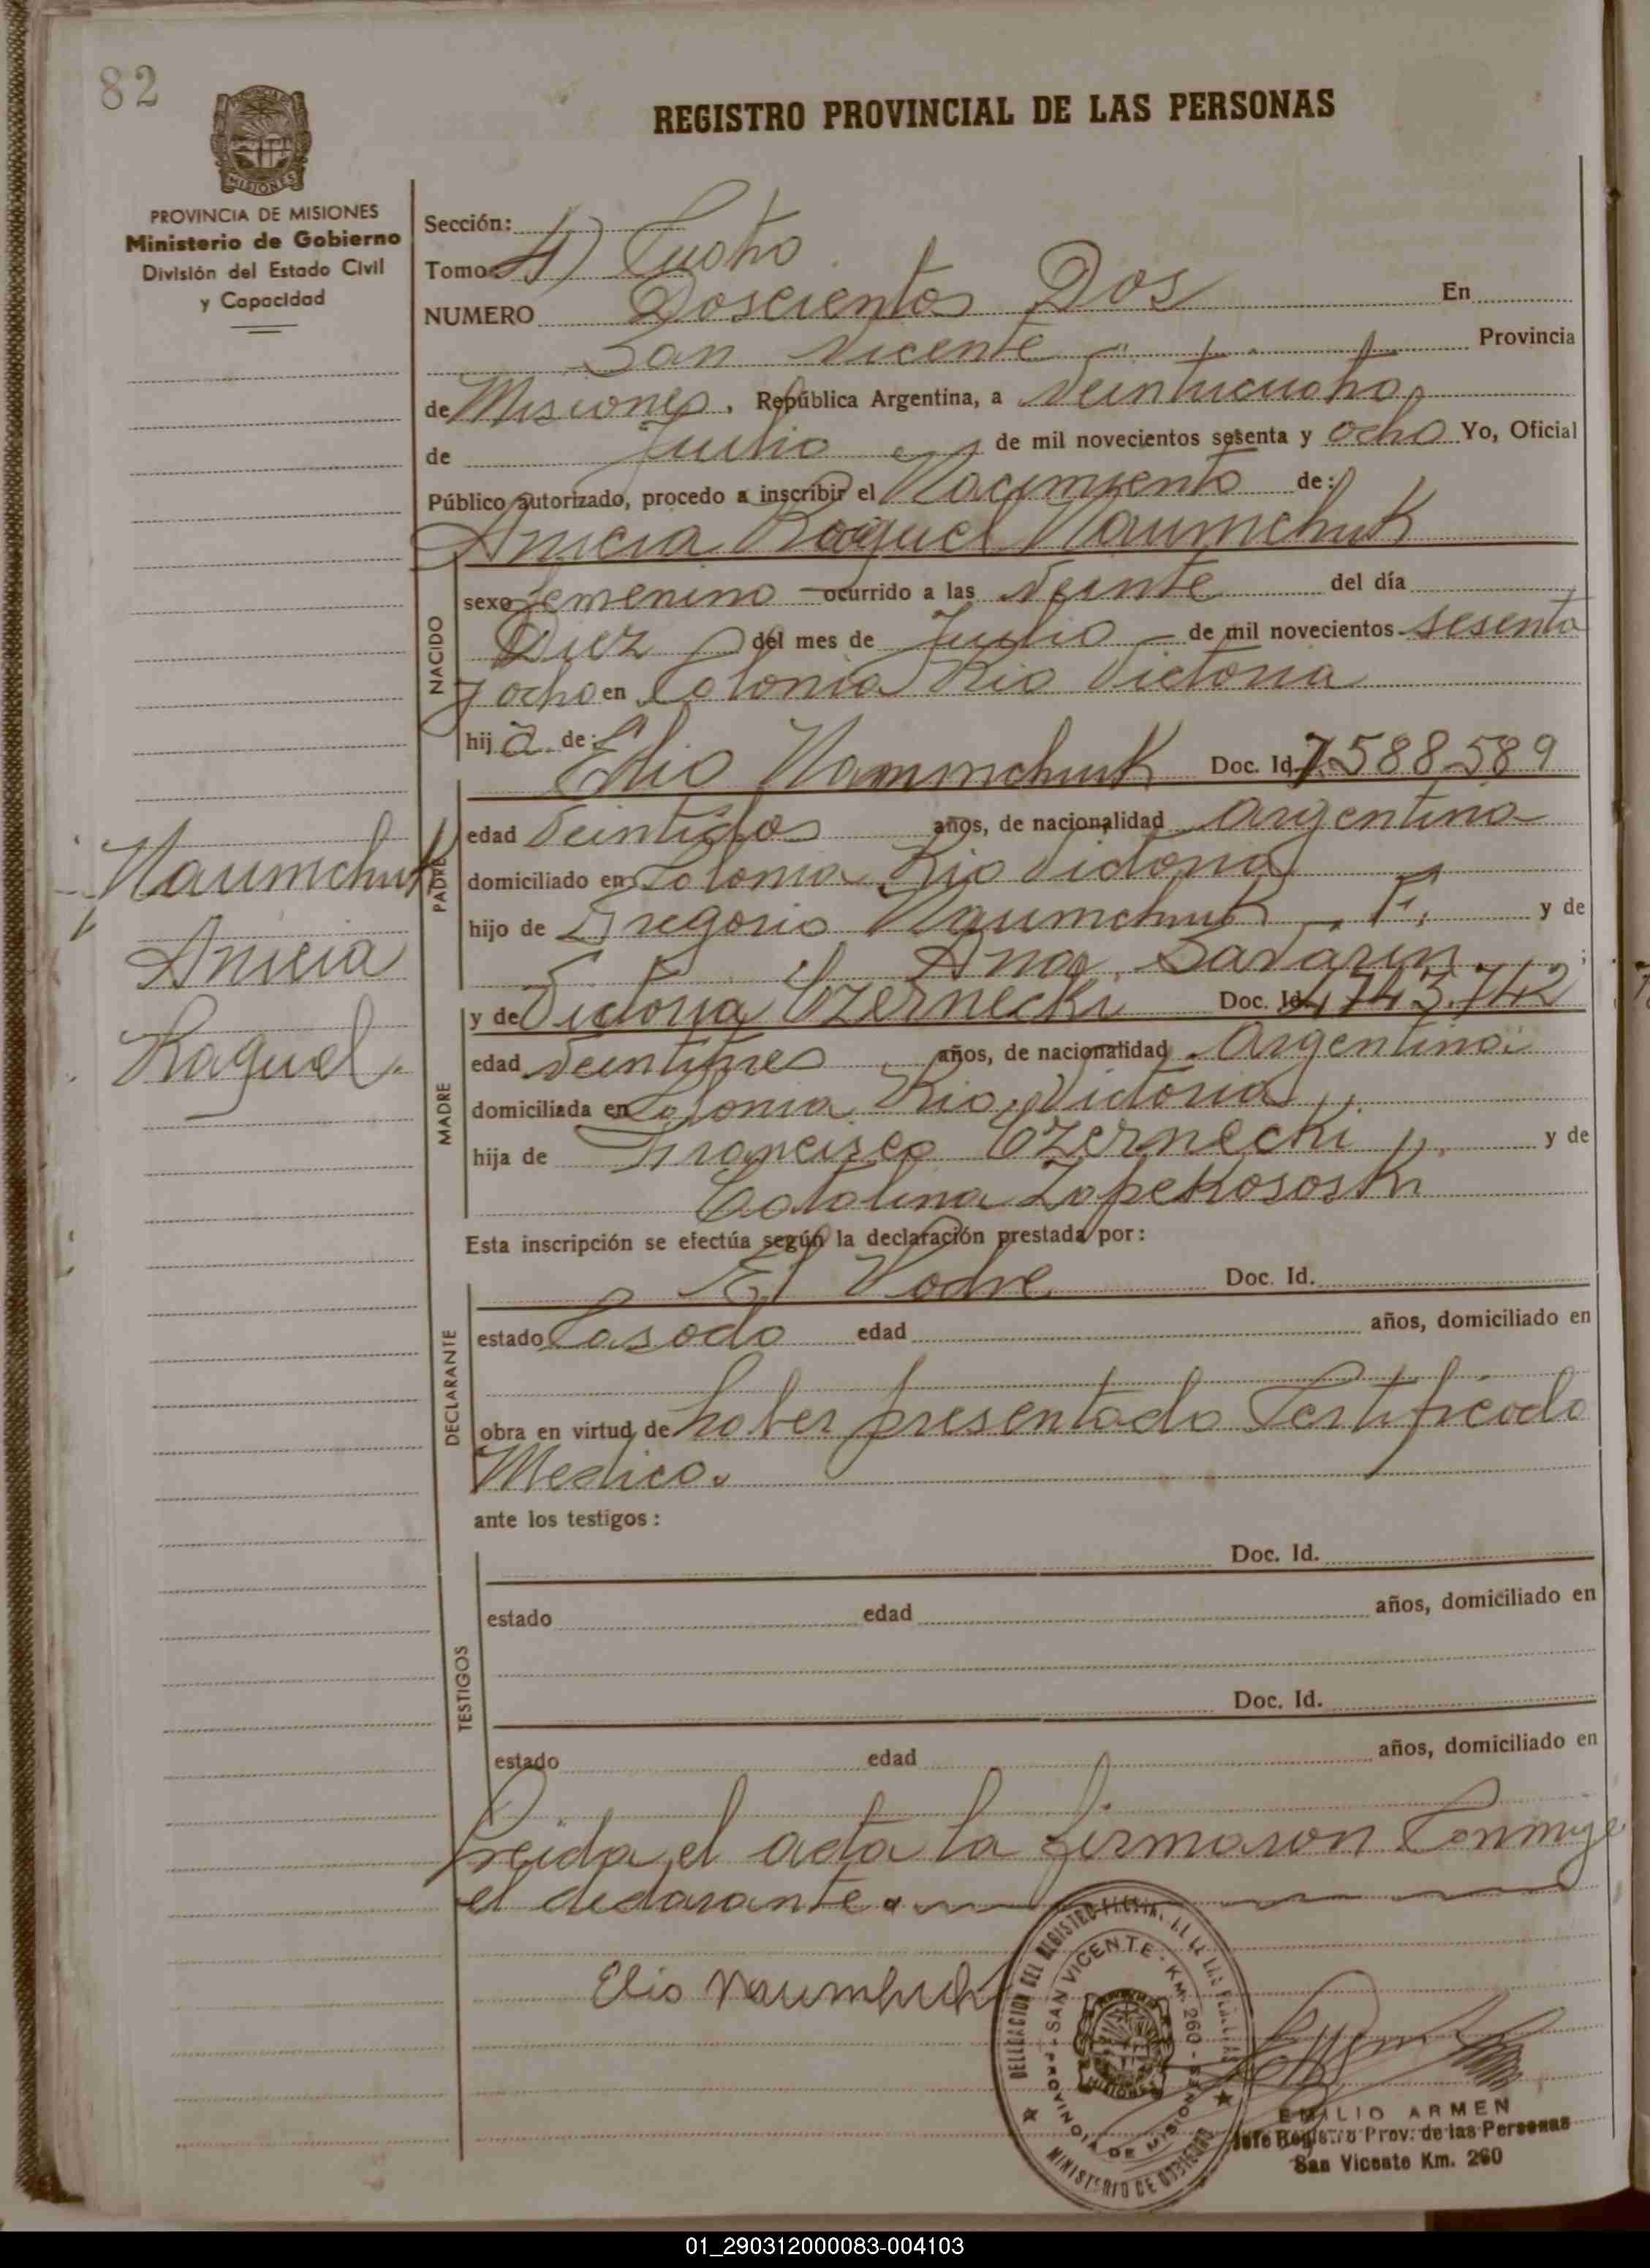 82
REGISTRO PROVINCIAL DE LAS PERSONAS
PROVINCIA DE MISIONES
Ministerio de Gobierno
División del Estado Civil
y Capacidad
Sección:
Tomo: 4) Cuatro
NUMERO Doscientos Dos En
San Vicente Provincia
de Misiones, República Argentina, a Veinticuatro
de Julio de mil novecientos sesenta y ocho Yo, Oficial
Público autorizado, procedo a inscribir el Nacimiento de:
Anicia Raquel Naumchuk
NACIDO
sexo femenino ocurrido a las Veinte del día
Diez del mes de Julio de mil novecientos sesenta
y ocho en Colonia Rio Victoria
hija de: Elio Naumchuk Doc. Id. 7.588.589
PADRE
edad Veintidos años, de nacionalidad Argentina
domiciliado en Colonia Rio Victoria
hijo de Gregorio Naumchuk F. y de
Ana Savarin
y de Victoria Czernecki Doc. Id. 4.743.742
MADRE
edad Veintitres años, de nacionalidad Argentina
domiciliada en Colonia Rio Victoria
hija de Francisco Czernecki y de
Catalina
Esta inscripción se efectúa según la declaración prestada por:
DECLARANTE
El Padre Doc. Id.
estado Casado edad años, domiciliado en
obra en virtud de haber presentado Certificado
Medico.
ante los testigos:
TESTIGOS
Doc. Id.
estado edad años, domiciliado en
Doc. Id.
estado edad años, domiciliado en
Leida el acta la firmaron Conmigo
el declarante.
Naumchuk
Anicia
Raquel.
Elio Naumchuk
DELEGACION DEL REGISTRO PROVINCIAL DE LAS PERSONAS
SAN VICENTE - KM. 260 - PROVINCIA DE MISIONES
MINISTERIO DE GOBIERNO
EMILIO ARMEN
Jefe Registro Prov. de las Personas
San Vicente Km. 260
01_290312000083-004103